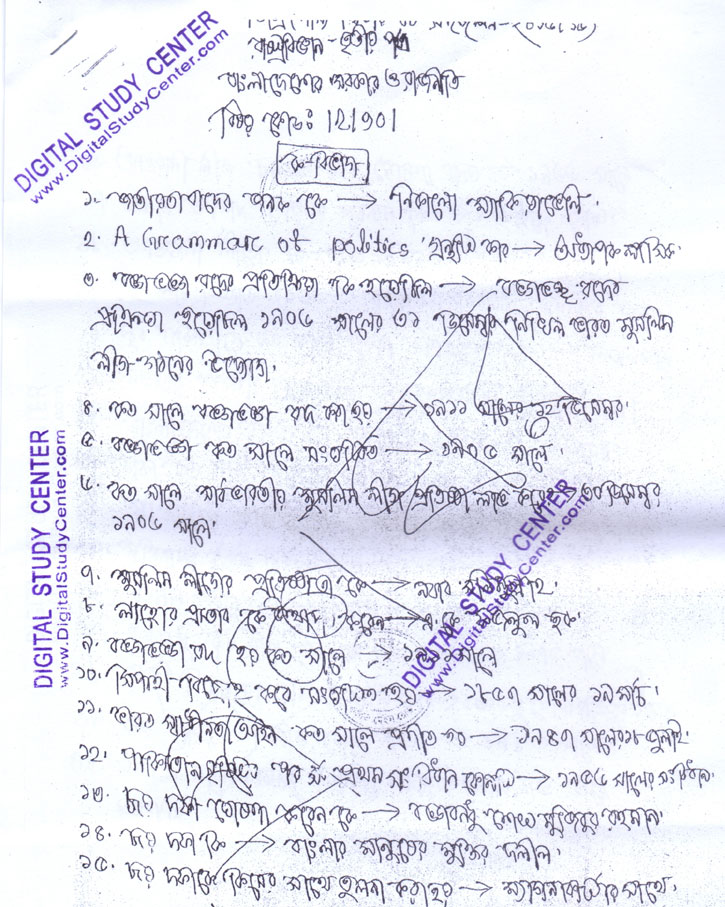 রাষ্ট্রবিজ্ঞান - তৃতীয় পত্র
বাংলাদেশের সরকার ও রাজনীতি
বিষয় কোডঃ 121901
ক-বিভাগ
১. জাতীয়তাবাদের জনক কে → নিকোলো ম্যাকিয়াভেলি।
২. A Grammar of politics গ্রন্থটি কার → অধ্যাপক লাস্কি।
৩. বঙ্গভঙ্গ রদের প্রতিক্রিয়া কি হয়েছিল → বঙ্গভঙ্গ রদের
হয়েছিল ১৯০৬ সালের ৩১ ডিসেম্বর নিখিল ভারত মুসলিম
লীগ গঠনের উদ্যোগ।
৪. কত সালে বঙ্গভঙ্গ রদ করা হয় → ১৯১১ সালের ১২ ডিসেম্বর।
৫. বঙ্গভঙ্গ কত সালে সংঘটিত → ১৯০৫ সালে।
৬. কত সালে সর্বভারতীয় মুসলিম লীগ প্রতিষ্ঠা লাভ করে ৩০ ডিসেম্বর
১৯০৬ সালে।
৭. মুসলিম লীগের প্রতিষ্ঠাতা কে → নবাব সলিমুল্লাহ।
৮. লাহোর প্রস্তাব কে উত্থাপন করেন → এ. কে ফজলুল হক।
৯. বঙ্গভঙ্গ রদ হয় কত সালে → ১৯১১ সালে
১০. সিপাহী বিদ্রোহ কবে সংঘটিত হয় → ১৮৫৭ সালের ২৯ মার্চ।
১১. ভারত স্বাধীনতা আইন কত সালে প্রণীত হয় → ১৯৪৭ সালের ১৮ জুলাই।
১২. পাকিস্তান পর প্রথম সংবিধান কোনটি → ১৯৫৬ সালের সংবিধান।
১৩. ছয় দফা ঘোষণা করেন কে → বঙ্গবন্ধু শেখ মুজিবুর রহমান।
১৪. ছয় দফা কি → বাংলার মানুষের মুক্তির দলীল।
১৫. ছয় দফাকে কিসের সাথে তুলনা করা হয় → ম্যাগনাকার্টার সাথে।
DIGITAL STUDY CENTER
www.DigitalStudyCenter.com
DIGITAL STUDY CENTER
www.DigitalStudyCenter.com
DIGITAL STUDY CENTER
www.DigitalStudyCenter.com